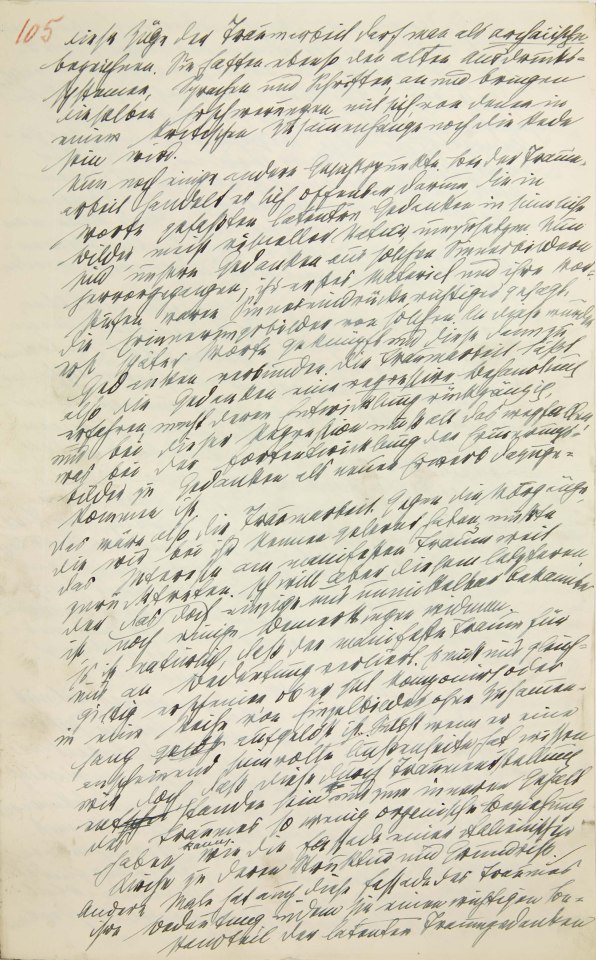 105
diese Züge der Traumarbeit darf man als archaische
bezeichnen. Sie haften ebenso den alten Ausdrucks-
systemen, Sprachen und Schriften an und bringen
dieselben Erschwerungen mit sich von denen in
einem kritischen Zusammenhange noch die Rede
sein wird.
Nun noch einige andere Gesichtspunkte. Bei der Traum-
arbeit handelt es sich offenbar darum, die in
Worte gefaßten latenten Gedanken in sinnliche
Bilder meist visueller Natur umzusetzen. Nun
sind unsere Gedanken aus solchen Sinnesbildern
hervorgegangen; ihr erstes Material und ihre Vor-
stufen waren Sinneseindrücke richtiger gesagt,
die Erinnerungsbilder von solchen. An diese wurden
erst später Worte geknüpft und diese dann zu
Gedanken verbunden. Die Traumarbeit läßt
also die Gedanken eine regressive Behandlung
erfahren, macht deren Entwicklung rückgängig
und bei dieser Regression muß all das wegfallen,
was bei der Fortentwicklung der Erinnerungs-
bilder zu Gedanken als neuer Erwerb dazuge-
kommen ist.
Das wäre also die Traumarbeit. Gegen die Vorgänge,
die wir bei ihr kennen gelernt haben, mußte
das Interesse am manifesten Traum weit
zurücktreten. Ich will aber diesem letzteren,
der das doch einzige uns unmittelbar bekannte
ist, noch einige Bemerkungen widmen.
Es ist natürlich, daß der manifeste Traum für
uns an Bedeutung verliert. Es muß uns gleich-
giltig erscheinen ob er gut komponirt oder
in eine Reihe von Einzelbilder ohne Zusammen-
hang aufgelöst ist. Selbst wenn er eine
anscheinend sinnvolle Außenseite hat, wissen
wir doch, daß diese durch Traumentstellung
entstanden sein und zum inneren Gehalt
des Traumes so wenig organische Beziehung
haben kann, wie die Fassade einer italienischen
Kirche zu deren Struktur und Grundriß.
Andere Male hat auch diese Fassade des Traumes
ihre Bedeutung indem sie einen wichtigen Be-
standteil der latenten Traumgedanken